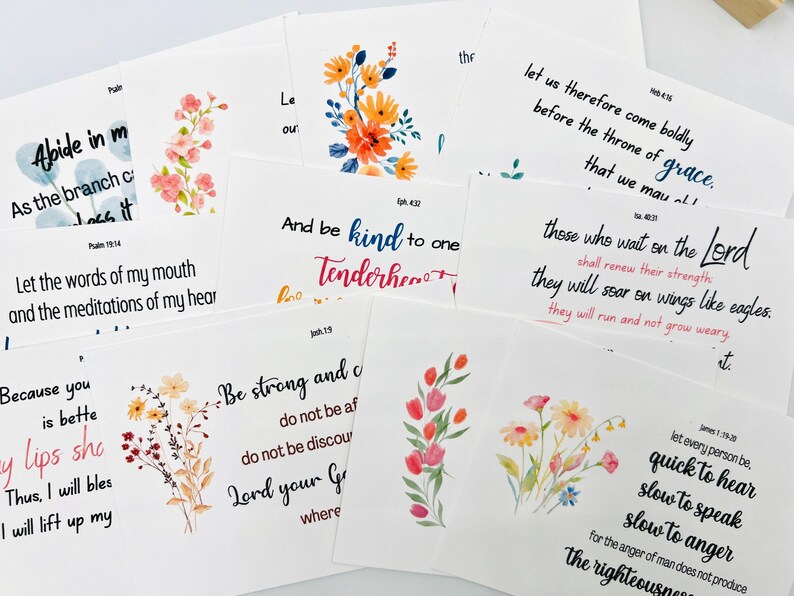 Abide in
As the branch
Let us therefore come boldly
before the throne of grace,
that we may
Heb 4:16
Psalm 19:14
Let the words of my mouth
and the meditations of my hear
Eph. 4:32
And be kind to one
Isa. 40:31
those who wait on the Lord
shall renew their strength;
they will soar on wings like eagles.
they will run and not grow weary,
Because you
is bette
y lips sh
Thus, I will bles
I will lift up my
Josh.1:9
Be strong and c
do not be af
do not be discou
Lord your G
where
James 1:19-20
let every person be,
quick to hear
slow to speak
slow to anger
for the anger of man does not produce
the righteousnes